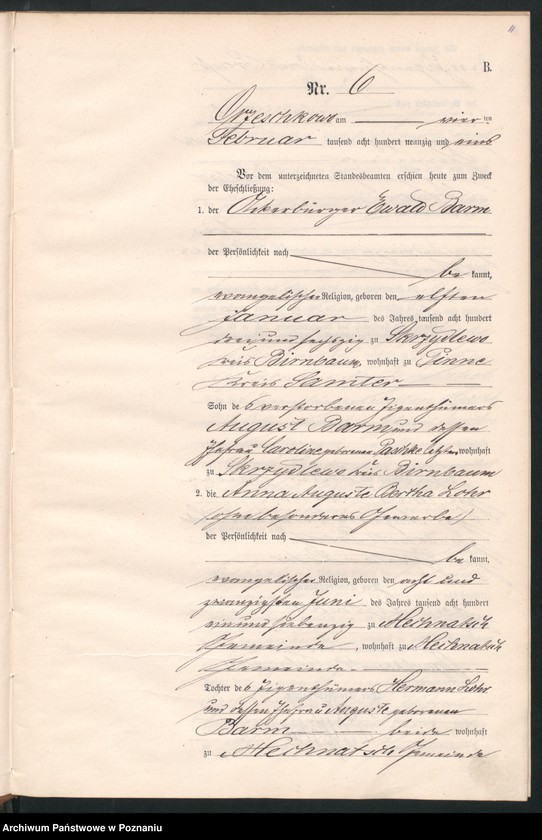 11
B.
Nr. 6
Orzeschkowo am vier ten
Februar tausend acht hundert neunzig und eins
Vor dem unterzeichneten Standesbeamten erschien heute zum Zweck
der Eheschließung:
1. der Ackerbürger Ewald Barm
der Persönlichkeit nach
be kannt,
evangelischer Religion, geboren den elften
Januar des Jahres tausend acht hundert
drei und sechszig zu Skrzydlewo
Kreis Birnbaum, wohnhaft zu Pinne
Kreis Samter
Sohn des verstorbenen Eigenthümers
August Barm und dessen
Ehefrau Caroline geborenen Paschke letztere wohnhaft
zu Skrzydlewo Kreis Birnbaum
2. die Anna Auguste Bertha Lohr
ohne besonderes Gewerbe
der Persönlichkeit nach
be kannt,
evangelischer Religion, geboren den acht und
zwanzigsten Juni des Jahres tausend acht hundert
ein und siebenzig zu Mechnatsch
Gemeinde, wohnhaft zu Mechnatsch
Gemeinde
Tochter des Eigenthümers Hermann Lohr
und dessen Ehefrau Auguste geborenen
Barm beide wohnhaft
zu Mechnatsch Gemeinde
Archiwum Państwowe w Poznaniu